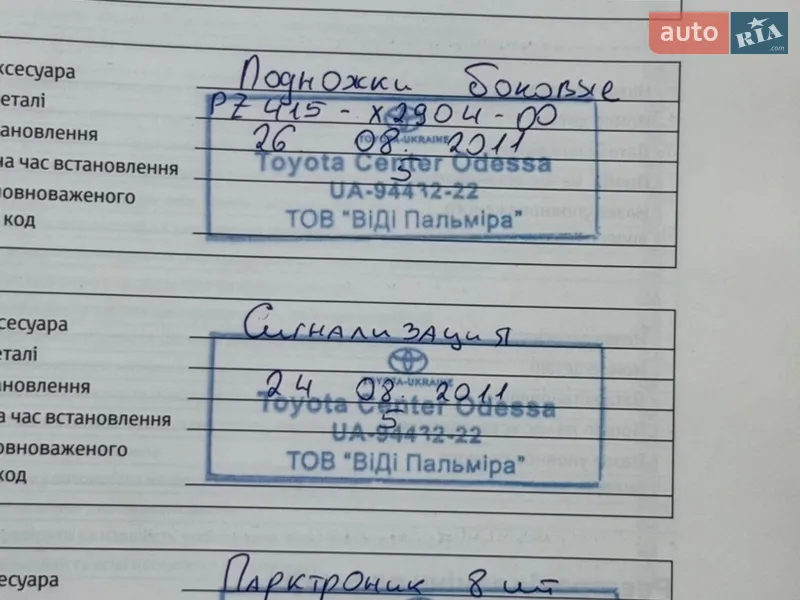 auto RIA .com
ксесуара Подножки боковые
еталі PZ415-X2904-00
тановлення 26 08. 2011
TOYOTA-UKRAINE
на час встановлення 5
Toyota Center Odessa
овноваженого UA-94432-22
код ТОВ "ВіДі Пальміра"
сесуара Сигнализация
еталі
TOYOTA-UKRAINE
ановлення 24 08. 2011
Toyota Center Odessa
а час встановлення 5
UA-94432-22
овноваженого
ТОВ "ВіДі Пальміра"
код
есуара Парктроник 8 шт